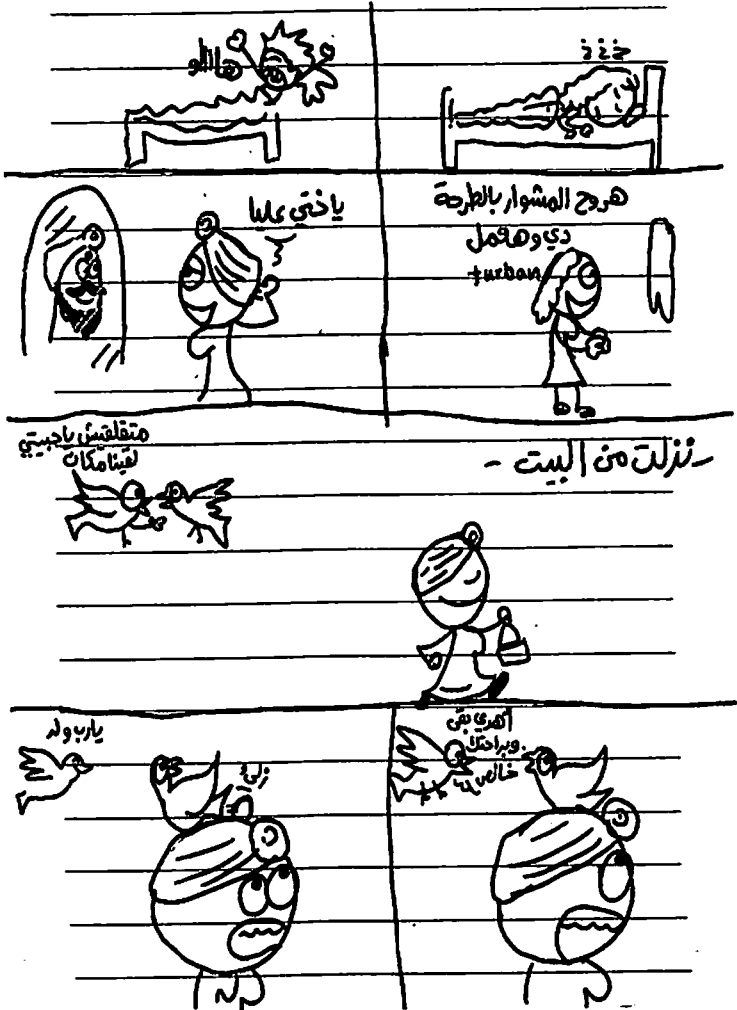 خ ز ز
هاااللو
هروح المشوار بالطرحة
دي وهعمل
turban
ياختي عليا
-نزلت من البيت-
متقلقيش ياحبيبتي
لقينا مكان
اهدي بقى
وبراحتك
خالص
يارب ولد
زق